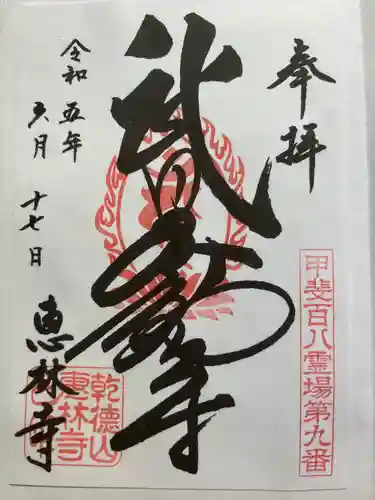 奉拝
甲斐百八霊場第九番
令和五年
六月十七日
恵林寺
乾徳山
恵林寺